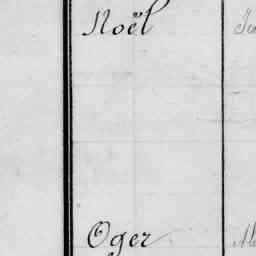 Noël
Oger